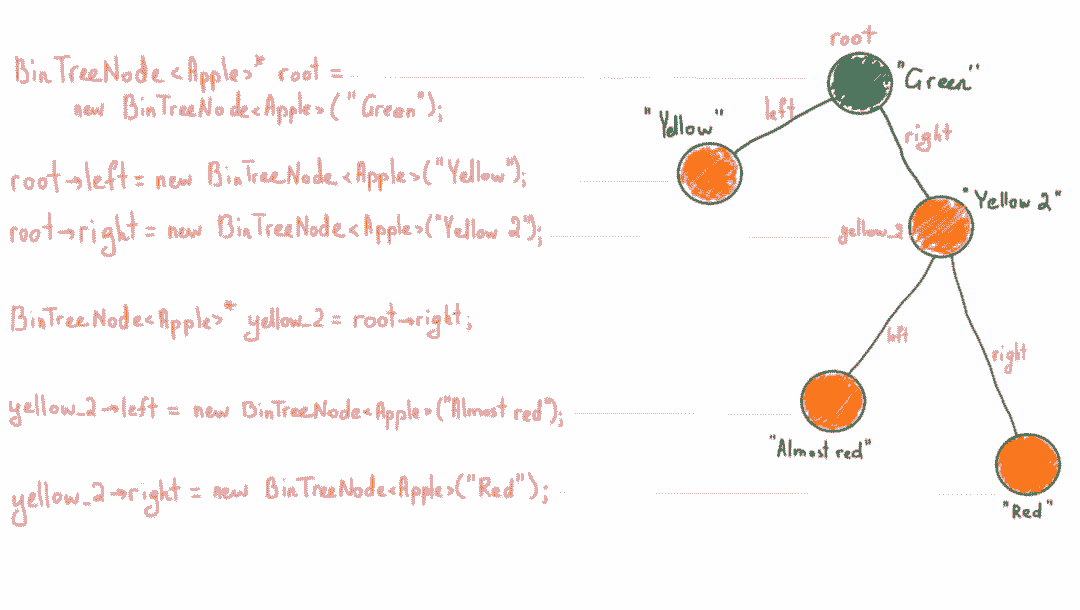 BinTreeNode<Apple>* root =
new BinTreeNode<Apple>("Green");
root→left = new BinTreeNode<Apple>("Yellow");
root→right = new BinTreeNode<Apple>("Yellow 2");
BinTreeNode<Apple>* yellow_2 = root→right;
yellow_2→left = new BinTreeNode<Apple>("Almost red");
yellow_2→right = new BinTreeNode<Apple>("Red");
root
"Green"
left
"Yellow"
right
"Yellow 2"
yellow_2
left
right
"Almost red"
"Red"